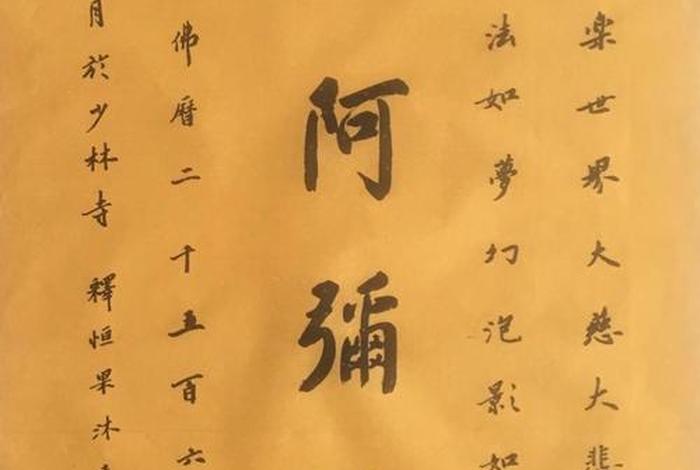 楽世界大慈大悲
法如夢幻泡影如
阿彌
佛曆二千五百六
月於少林寺 釋恒果沐